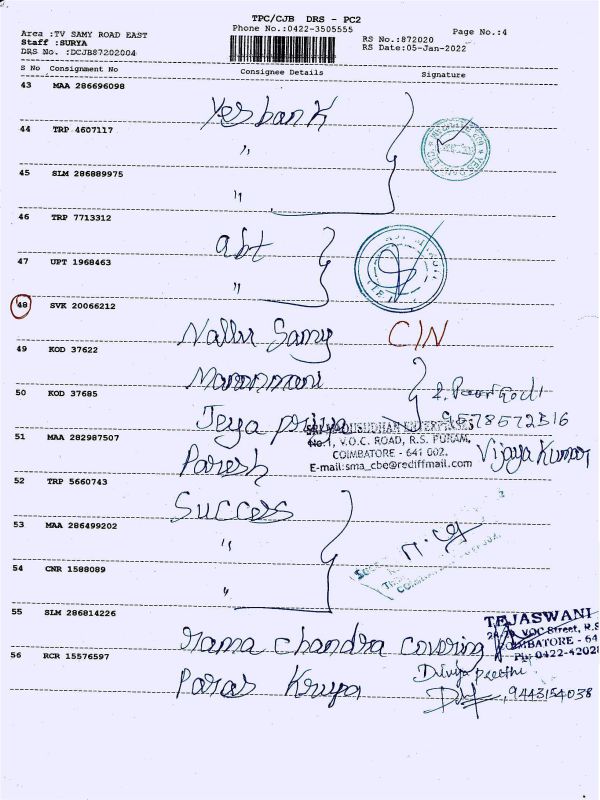 TPC/CJB DRS - PC2
Phone No.:0422-3505555
Area :TV SAMY ROAD EAST
Staff :SURYA
DRS No. :DCJB87202004
RS No.:872020
RS Date:05-Jan-2022
Page No.:4
S No Consignment No Consignee Details Signature
43 MAA 286696098
Yes bank
44 TRP 4607117
"
45 SLM 286889975
"
46 TRP 7713312
abt
47 UPT 1968463
"
48 SVK 20066212
Nallu Samy C/N
49 KOD 37622
Maranmani
50 KOD 37685
Jeya priya 9578572516
51 MAA 282987507
SRI MADHUSUDHAN ENTERPRISES
No.1, V.O.C. ROAD, R.S. PURAM,
COIMBATORE - 641 002.
E-mail:sma_cbe@rediffmail.com
Paresh Vijaya Kumar
52 TRP 5660743
Success
53 MAA 286499202
"
54 CNR 1588089
"
55 SLM 286814226
rama chandra covering
TEJASWANI
VOC Street, R.S
COIMBATORE - 64
Ph: 0422-42028
56 RCR 15576597
Paras Krupa
Divya preethi
9443154038